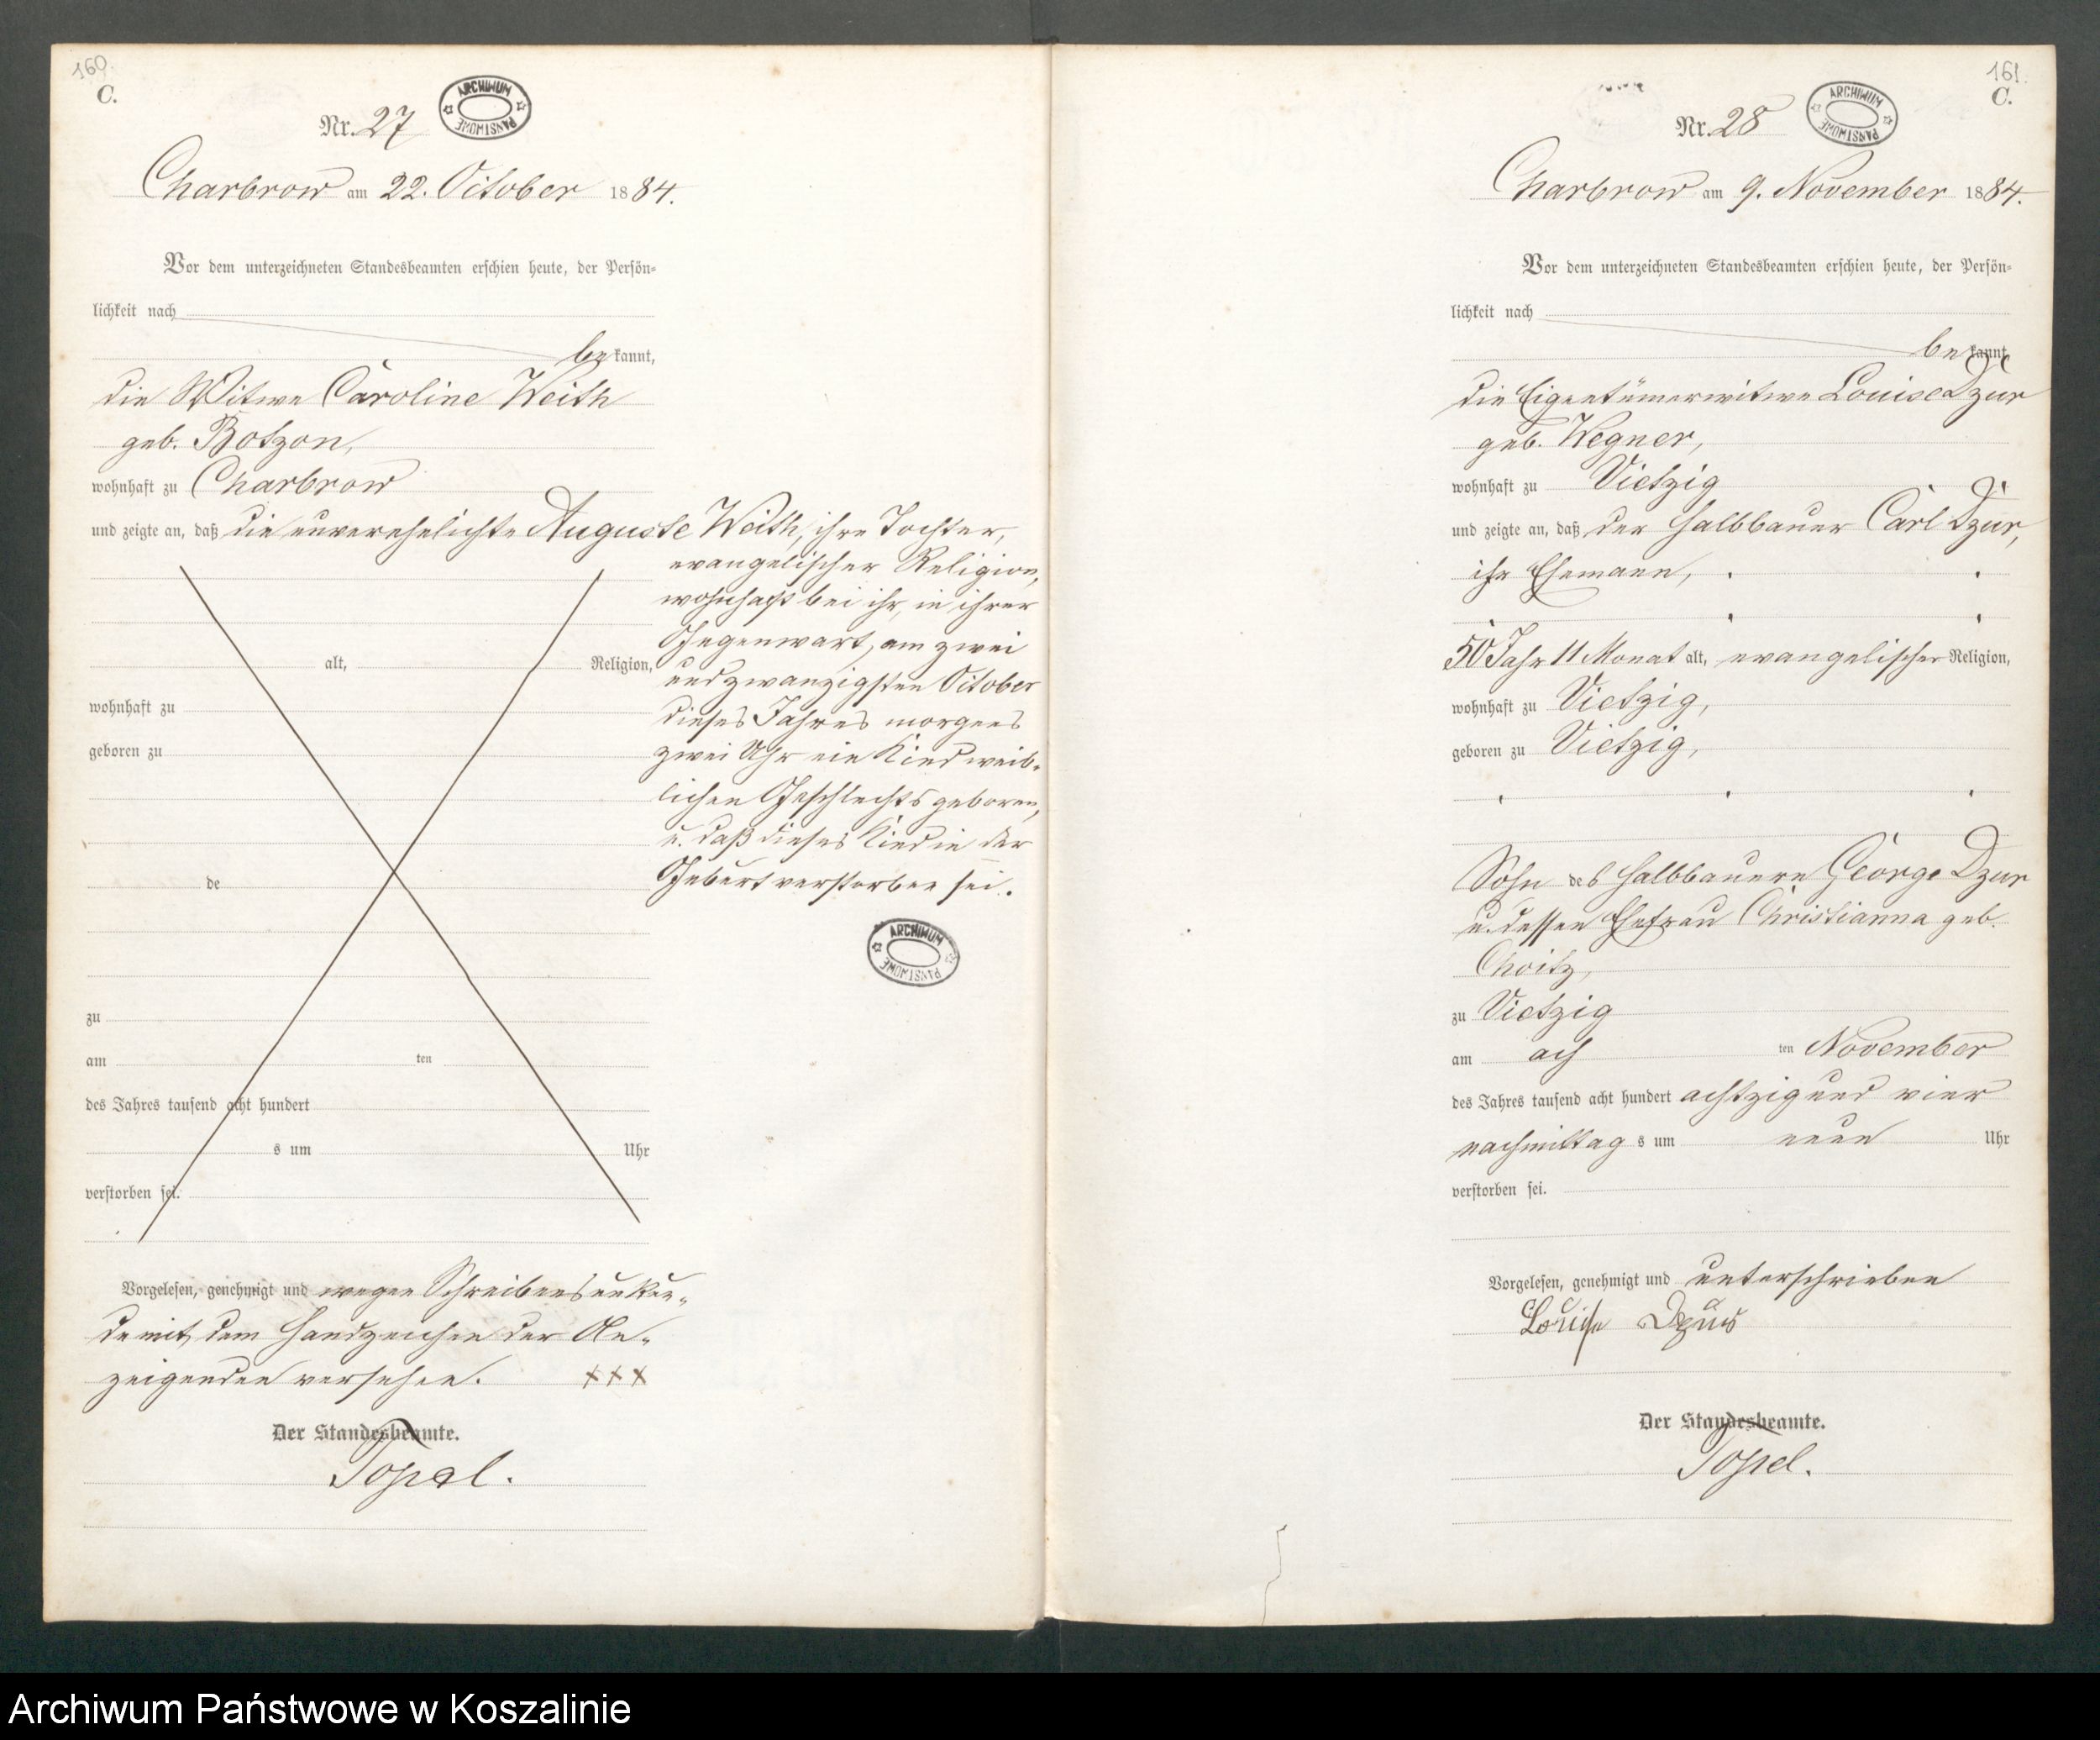 160.
C.
Nr. 27
ARCHIWUM PAŃSTWOWE
Charbrow am 22. October 1884.
Vor dem unterzeichneten Standesbeamten erschien heute, der Persön=
lichkeit nach
bekannt,
die Witwe Caroline Weith
geb. Botzon,
wohnhaft zu Charbrow
und zeigte an, daß die unverehelichte Auguste Weith, ihre Tochter,
evangelischer Religion,
wohnhaft bei ihr, in ihrer
Gegenwart, am zwei
und zwanzigsten October
dieses Jahres morgens
zwei Uhr ein Kind weib=
lichen Geschlechts geboren,
u. daß dieses Kind in der
Geburt verstorben sei.
ARCHIWUM PAŃSTWOWE
alt, Religion,
wohnhaft zu
geboren zu
de
zu
am ten
des Jahres tausend acht hundert
s um Uhr
verstorben sei.
Vorgelesen, genehmigt und wegen Schreibensunkun=
de mit dem Handzeichen der An=
zeigenden versehen. +++
Der Standesbeamte.
Topel.
161.
C.
Nr. 28
ARCHIWUM PAŃSTWOWE
Charbrow am 9. November 1884.
Vor dem unterzeichneten Standesbeamten erschien heute, der Persön=
lichkeit nach
bekannt,
die Eigentümerwitwe Louise Dzur
geb. Wegner,
wohnhaft zu Vietzig
und zeigte an, daß der Halbbauer Carl Dzur,
ihr Ehemann,
50 Jahr 11 Monat alt, evangelischer Religion,
wohnhaft zu Vietzig,
geboren zu Vietzig,
Sohn des Halbbauern George Dzur
u. dessen Ehefrau Christianna geb.
Choitz,
zu Vietzig
am ach ten November
des Jahres tausend acht hundert achtzig und vier
nachmittag s um neun Uhr
verstorben sei.
Vorgelesen, genehmigt und unterschrieben
Louise Dzur
Der Standesbeamte.
Topel.
Archiwum Państwowe w Koszalinie